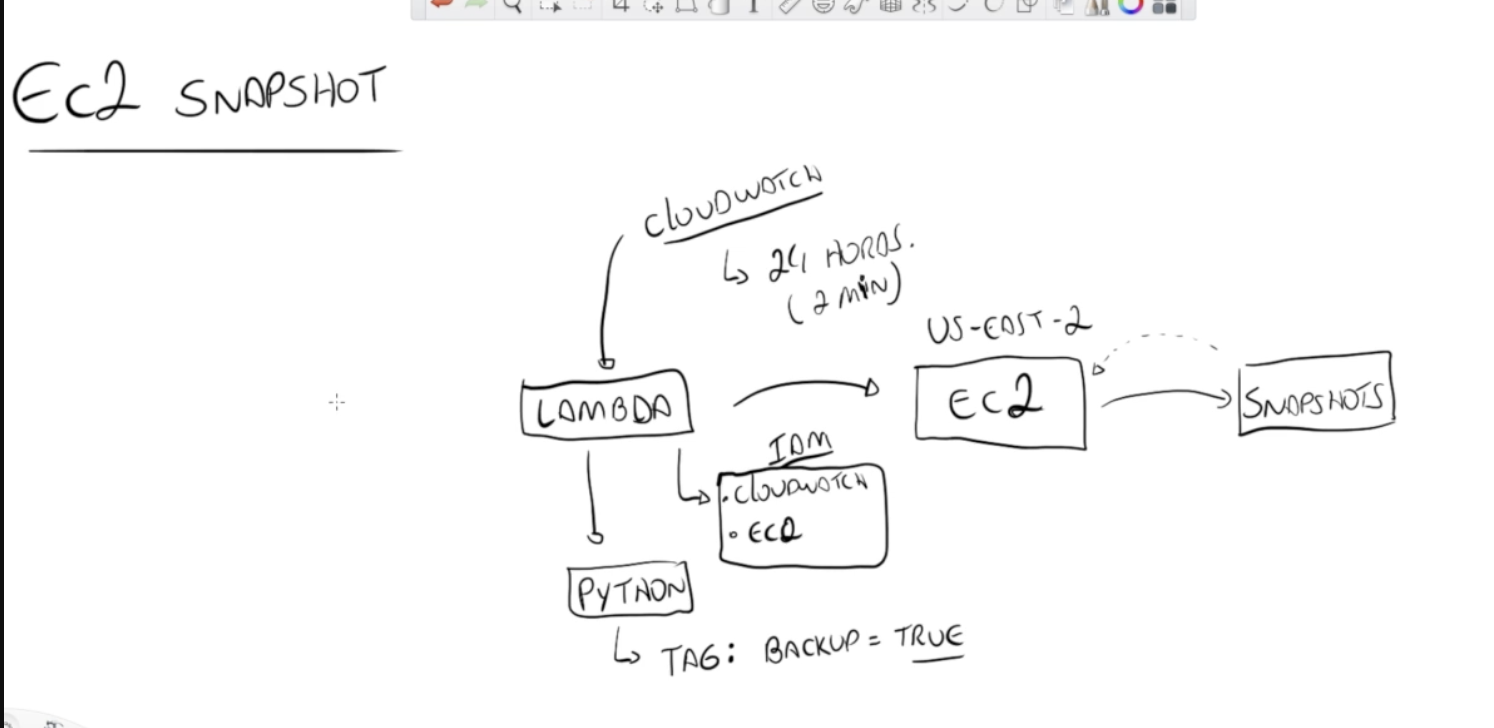 Ec2 SNAPSHOT
CLOUDWATCH
24 HORAS.
(2 MIN)
US-EAST-2
LAMBDA
EC2
SNAPSHOTS
IAM
• CLOUDWATCH
• EC2
PYTHON
TAG: BACKUP = TRUE